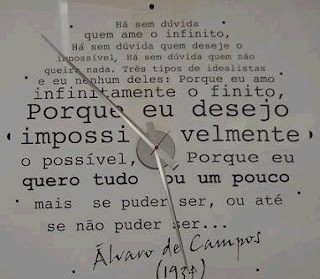 Há sem dúvida
quem ame o infinito,
Há sem dúvida quem deseje o
impossível, Há sem dúvida quem não
queira nada. Três tipos de idealistas
e eu nenhum deles: Porque eu amo
infinitamente o finito,
Porque eu desejo
impossivelmente
o possível, Porque eu
quero tudo ou um pouco
mais se puder ser, ou até
se não puder ser...
Álvaro de Campos
(1934)